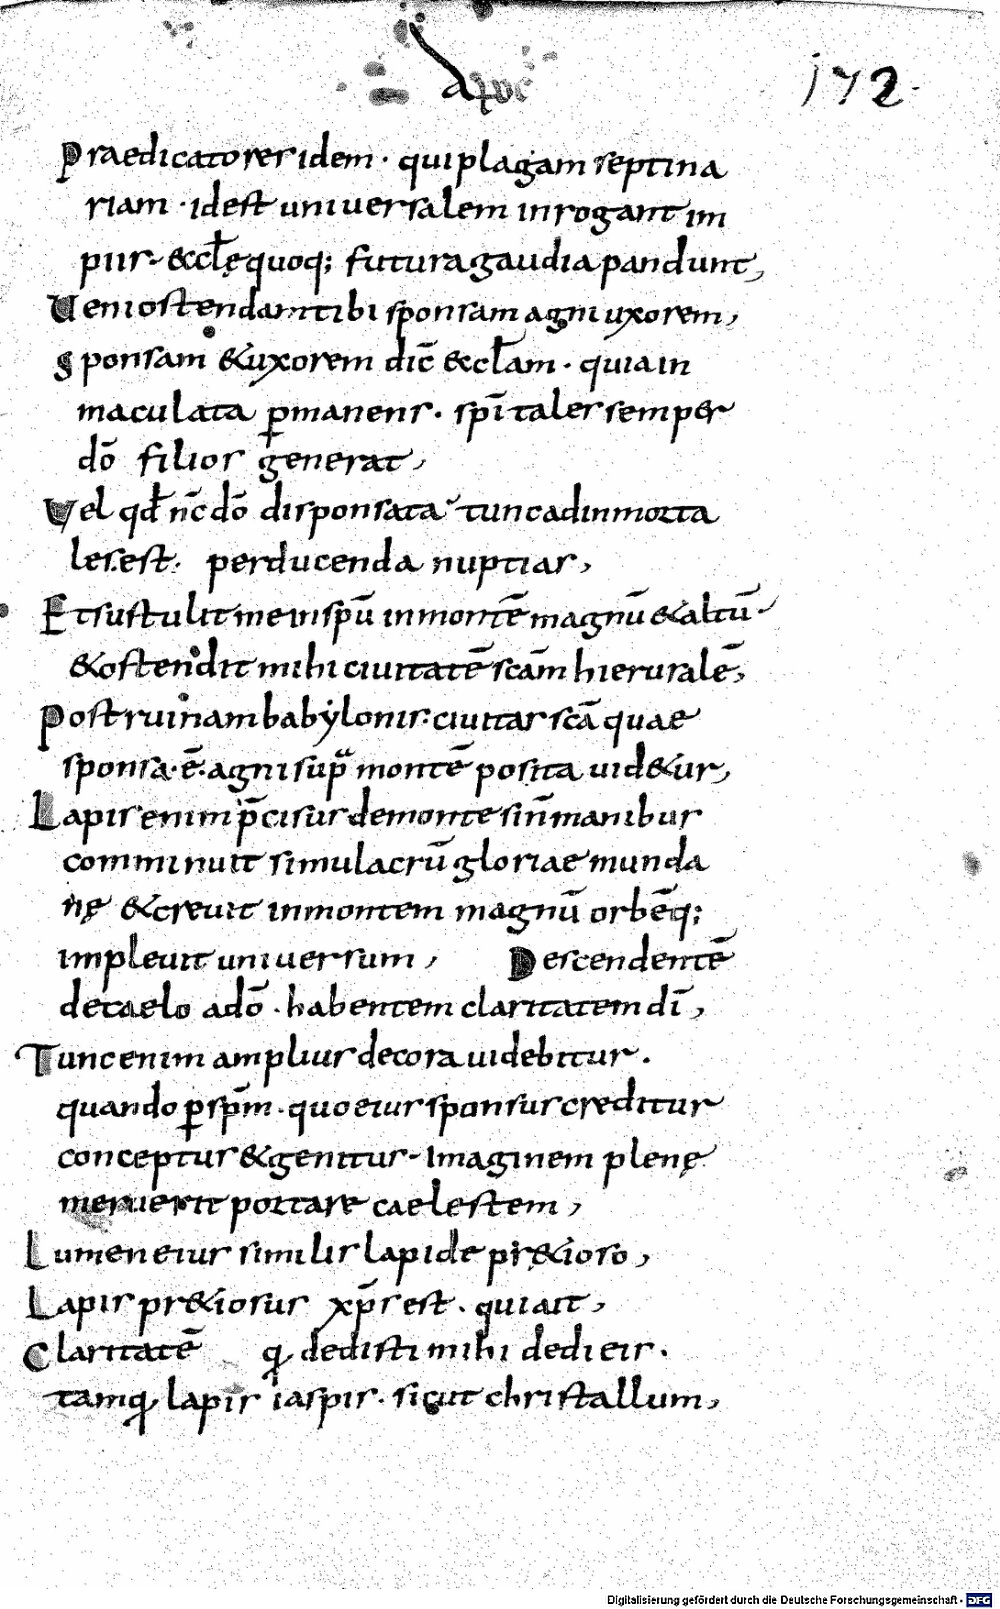 Apoc
172.
Praedicatores idem · qui plagam septina
riam · id est universalem inrogant im
piis · & eccłę quoq; futura gaudia pandunt,
Veni ostendam tibi sponsam agni uxorem,
sponsam & uxorem dic̄ & ccłam · quia in
maculata p̱manens · sp̄itales semper
dō filios generat,
Vel qđ nc̄ dō disponsata tunc ad inmorta
les est · perducenda nuptias,
Et sustulit me in spū in montē magnū & altū ·
& ostendit mihi civitatē sc̄am hierusalē,
Post ruinam babẏlonis : civitas sc̄a quae
sponsa · ē · agni sup̄ montē posita vid&ur,
Lapis enim p̄cisus de monte sin̄ manibus
comminuit simulacrū gloriae munda
nę & crevit in montem magnū orbēq;
implevit universum, Descendentē
de caelo a dō · habentem claritatem dī,
Tunc enim amplius decora videbitur .
quando p̱ spm̄ · quo eius sponsus creditur
conceptus & genitus · Imaginem plenę
meruerit portare caelestem,
Lumen eius similis lapide pr&ioso,
Lapis pr&iosus xp̄s est . quia ait,
Claritatē q̨ dedisti mihi dedi eis .
tamq̨ lapis iaspis · sicut christallum,
Digitalisierung gefördert durch die Deutsche Forschungsgemeinschaft - DFG